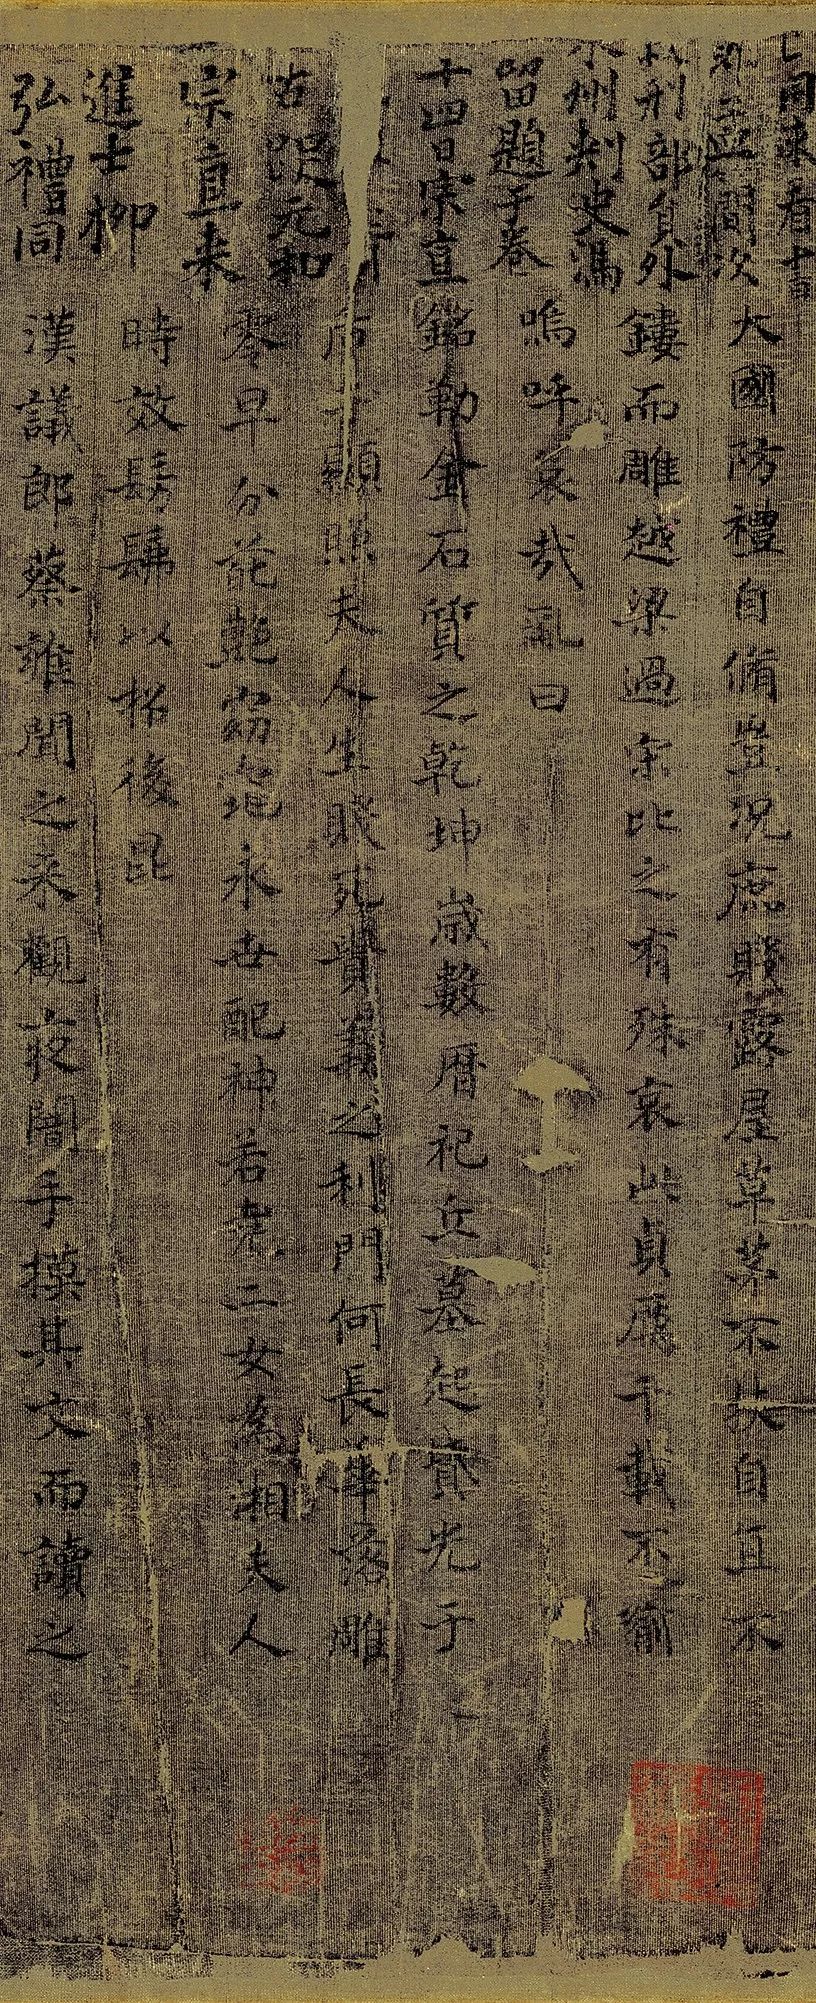 同來看
間次
刑部員外
州刺史馮
留題于卷
十四日宗直
元和
宗直來
進士柳
弘禮同
大國防禮自脩豈況庶賤露屋草茅不扶自直不
鏤而雕越梁過宋比之有殊哀此貞厲千載不渝
嗚呼哀哉亂曰
銘勒金石質之乾坤歲數曆祀丘墓起墳光于
后土顯照夫人生賤死貴義之利門何長華落雕
零早分葩艷窈窕永世配神若堯二女為湘夫人
時效髣髴以招後昆
漢議郎蔡雍聞之來觀夜闇手摸其文而讀之